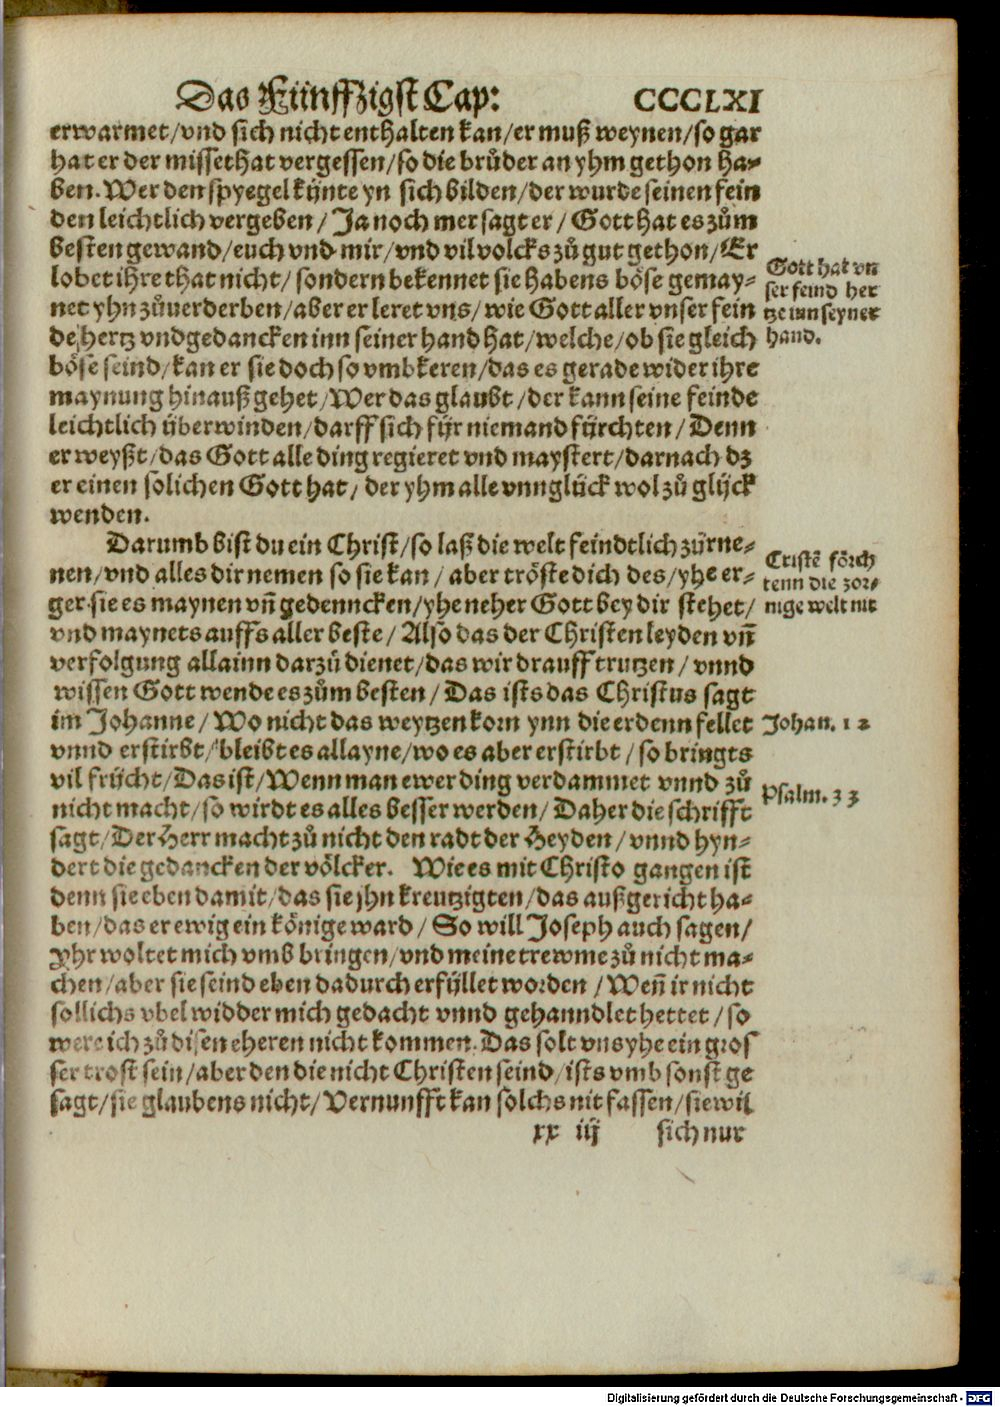 Das Fünffzigst Cap: CCCLXI
erwarmet/vnd sich nicht enthalten kan/er muß weynen/so gar
hat er der missethat vergessen/so die brůder an yhm gethon ha⸗
ben. Wer den spyegel kÿnte yn sich bilden/der wurde seinen fein
den leichtlich vergeben/Ja noch mer sagt er/Gott hat es zům
besten gewand/euch vnd mir/vnd vil volcks zů gut gethon/Er
lobet ihre that nicht/sondern bekennet sie habens böse gemay⸗
net yhn zůuerderben/aber er leret vns/wie Gott aller vnser fein
de hertz vnd gedancken inn seiner hand hat/welche/ob sie gleich
böse seind/kan er sie doch so vmbkeren/das es gerade wider ihre
maynung hinauß gehet/Wer das glaubt/der kann seine feinde
leichtlich ÿberwinden/darff sich fÿr niemand fÿrchten/Denn
er weyßt/das Gott alle ding regieret vnd maystert/darnach dz
er einen solichen Gott hat/der yhm alle vnnglück wol zů glÿck
wenden.
Gott hat vn
ser feind her
tze inn seyner
hand.
Darumb bist du ein Christ/so laß die welt feindtlich zÿrne⸗
nen/vnd alles dir nemen so sie kan/aber tröste dich des/yhe er⸗
ger sie es maynen vn̄ gedenncken/yhe neher Gott bey dir stehet/
vnd maynets auffs aller beste/Also das der Christen leyden vn̄
verfolgung allainn darzů dienet/das wir drauff trutzen/vnnd
wissen Gott wende es zům besten/Das ists das Christus sagt
im Johanne/Wo nicht das weytzen korn ynn die erdenn fellet
vnnd erstirbt/bleibt es allayne/wo es aber erstirbt/so bringts
vil frÿcht/Das ist/Wenn man ewer ding verdammet vnnd zů
nicht macht/so wirdt es alles besser werden/Daher die schrifft
sagt/Der Herr macht zů nicht den radt der Heyden/vnnd hyn⸗
dert die gedancken der völcker. Wie es mit Christo gangen ist
denn sie eben damit/das sie jhn kreutzigten/das außgericht ha⸗
ben/das er ewig ein könige ward/So will Joseph auch sagen/
Yhr woltet mich vmb bringen/vnd meine trewme zů nicht ma⸗
chen/aber sie seind eben dadurch erfÿllet worden/Wen̄ ir nicht
sollichs vbel widder mich gedacht vnnd gehanndlet hettet/so
were ich zů disen eheren nicht kommen. Das solt vns yhe ein gros
ser trost sein/aber den die nicht Christen seind/ists vmb sonst ge
sagt/sie glaubens nicht/Vernunfft kan solchs nit fassen/sie wil
Cristē förch
tenn die zor⸗
nige welt nit
Johan. 12
Psalm. 33
xx iij sich nur
Digitalisierung gefördert durch die Deutsche Forschungsgemeinschaft - DFG